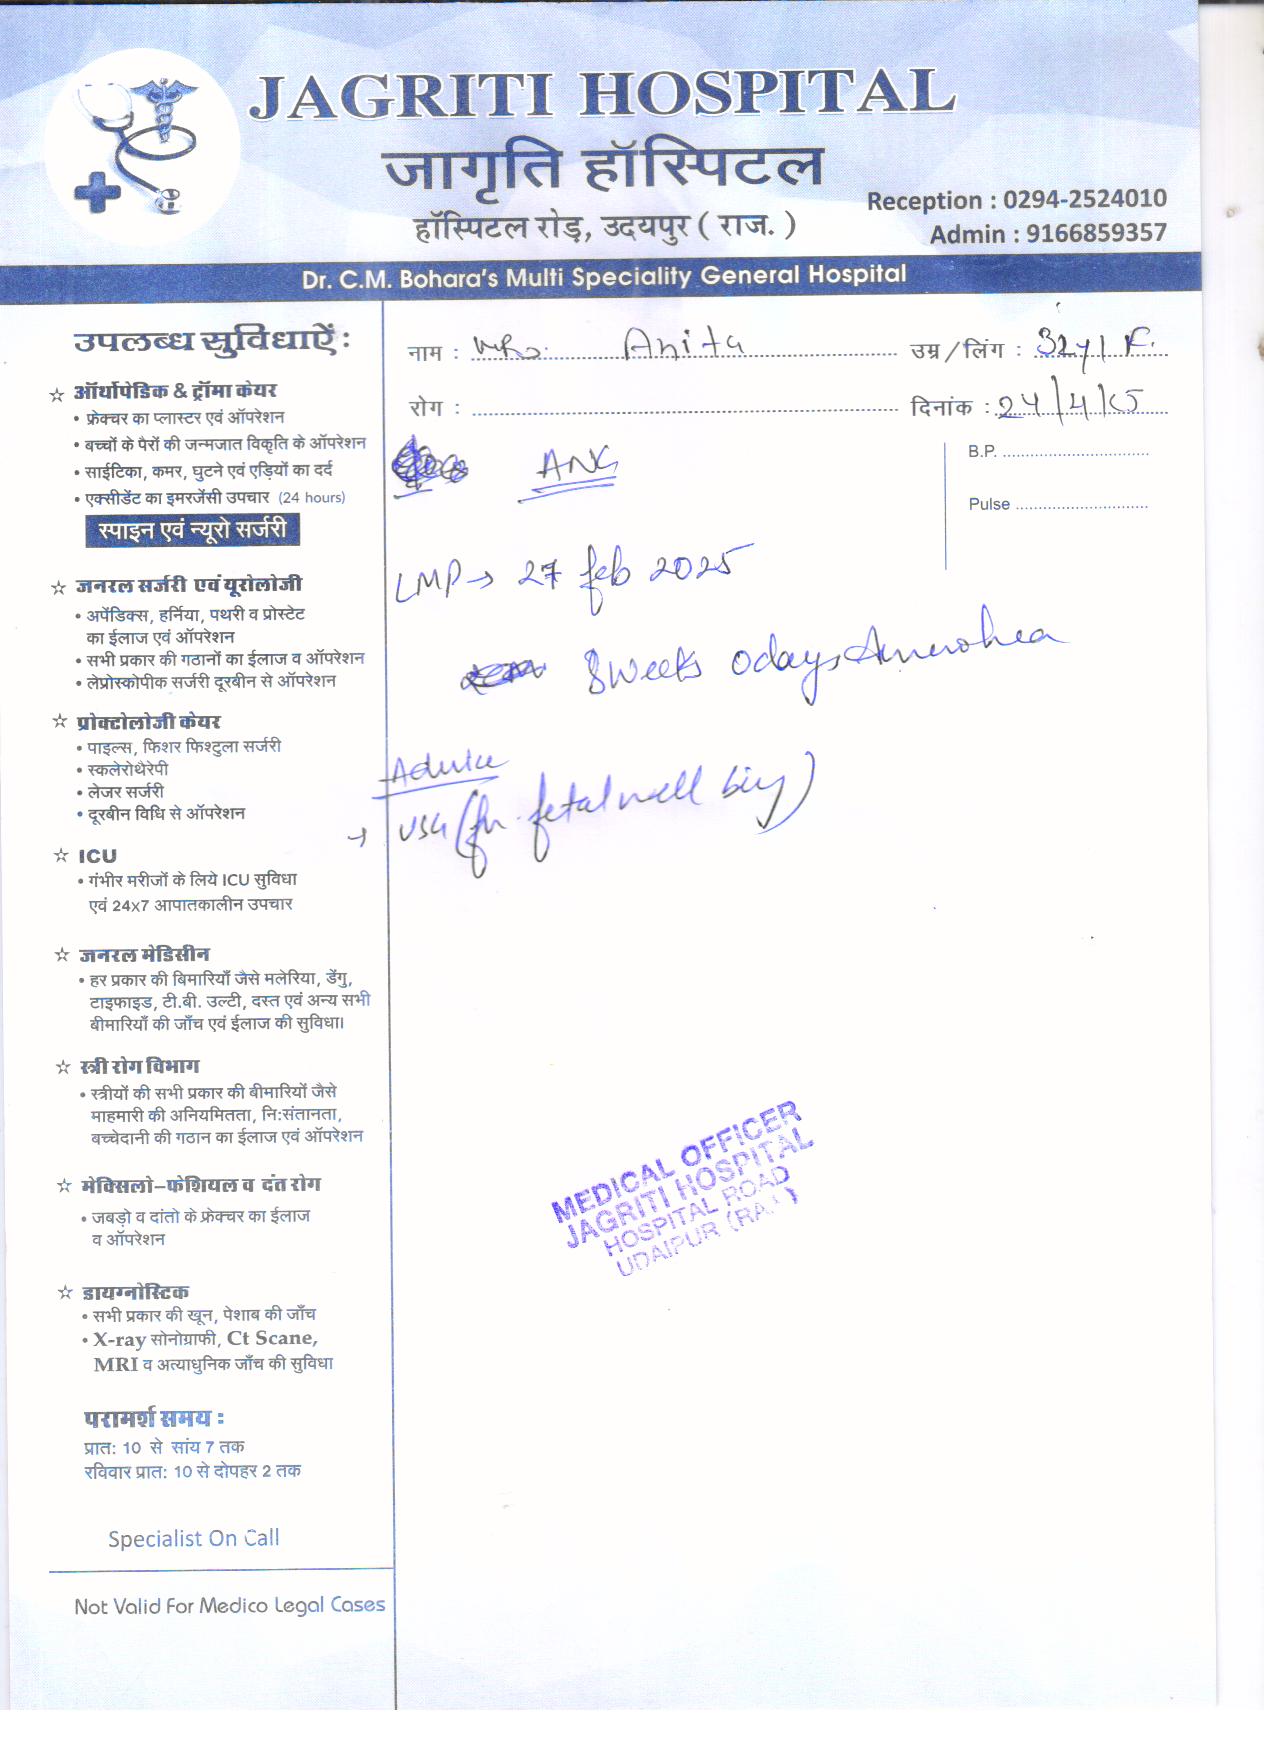 JAGRITI HOSPITAL
जागृति हॉस्पिटल
हॉस्पिटल रोड़, उदयपुर ( राज. )
Reception : 0294-2524010
Admin : 9166859357
Dr. C.M. Bohara's Multi Speciality General Hospital
नाम : Mrs. Anita उम्र / लिंग : 32y / F.
रोग : दिनांक : 24/4/25
B.P.
Pulse
ANC
LMP → 27 feb 2025
8 weeks 0 days Amerohea
Advice
→ USG (for fetal well bing)
MEDICAL OFFICER
JAGRITI HOSPITAL
HOSPITAL ROAD
UDAIPUR (RAJ.)
उपलब्ध सुविधाऐं :
☆ ऑर्थोपेडिक & ट्रॉमा केयर
• फ्रेक्चर का प्लास्टर एवं ऑपरेशन
• बच्चों के पैरों की जन्मजात विकृति के ऑपरेशन
• साईटिका, कमर, घुटने एवं एड़ियों का दर्द
• एक्सीडेंट का इमरजेंसी उपचार (24 hours)
स्पाइन एवं न्यूरो सर्जरी
☆ जनरल सर्जरी एवं यूरोलोजी
• अपेंडिक्स, हर्निया, पथरी व प्रोस्टेट
का ईलाज एवं ऑपरेशन
• सभी प्रकार की गठानों का ईलाज व ऑपरेशन
• लेप्रोस्कोपीक सर्जरी दूरबीन से ऑपरेशन
☆ प्रोक्टोलोजी केयर
• पाइल्स, फिशर फिश्टुला सर्जरी
• स्कलेरोथैरेपी
• लेजर सर्जरी
• दूरबीन विधि से ऑपरेशन
☆ ICU
• गंभीर मरीजों के लिये ICU सुविधा
एवं 24x7 आपातकालीन उपचार
☆ जनरल मेडिसीन
• हर प्रकार की बिमारियाँ जैसे मलेरिया, डेंगु,
टाइफाइड, टी.बी. उल्टी, दस्त एवं अन्य सभी
बीमारियाँ की जाँच एवं ईलाज की सुविधा।
☆ स्त्री रोग विभाग
• स्त्रीयों की सभी प्रकार की बीमारियों जैसे
माहमारी की अनियमितता, नि:संतानता,
बच्चेदानी की गठान का ईलाज एवं ऑपरेशन
☆ मेक्सिलो-फेशियल व दंत रोग
• जबड़ो व दांतो के फ्रेक्चर का ईलाज
व ऑपरेशन
☆ डायग्नोस्टिक
• सभी प्रकार की खून, पेशाब की जाँच
• X-ray सोनोग्राफी, Ct Scane,
MRI व अत्याधुनिक जाँच की सुविधा
परामर्श समय :
प्रात: 10 से सांय 7 तक
रविवार प्रात: 10 से दोपहर 2 तक
Specialist On Call
Not Valid For Medico Legal Cases